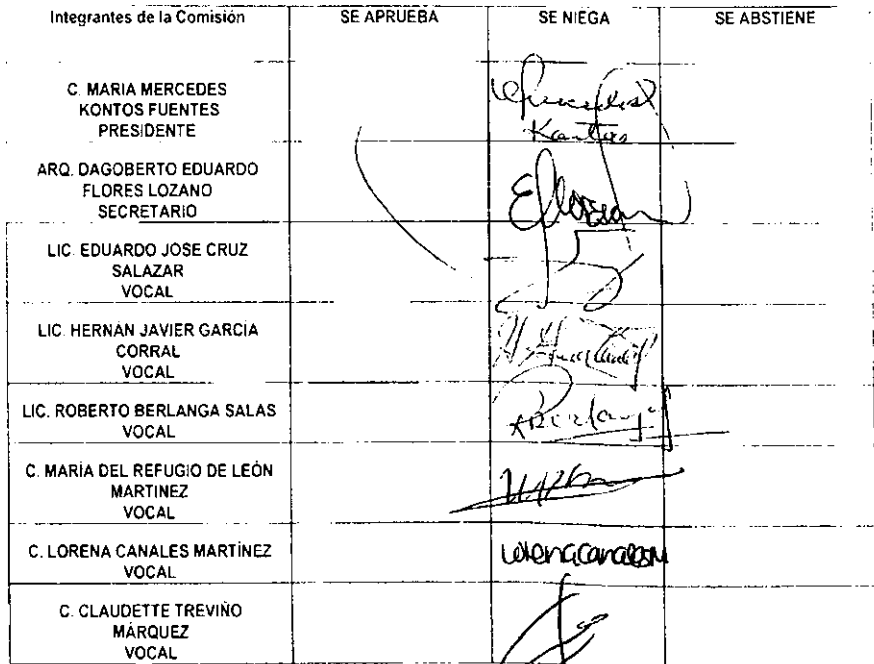 Integrantes de la Comisión SE APRUEBA SE NIEGA SE ABSTIENE
C. MARIA MERCEDES
KONTOS FUENTES
PRESIDENTE
Kontos
ARQ. DAGOBERTO EDUARDO
FLORES LOZANO
SECRETARIO
LIC. EDUARDO JOSE CRUZ
SALAZAR
VOCAL
LIC. HERNÁN JAVIER GARCÍA
CORRAL
VOCAL
LIC. ROBERTO BERLANGA SALAS
VOCAL
RBerlanga
C. MARÍA DEL REFUGIO DE LEÓN
MARTINEZ
VOCAL
C. LORENA CANALES MARTÍNEZ
VOCAL
LorenaCanalesM
C. CLAUDETTE TREVIÑO
MÁRQUEZ
VOCAL